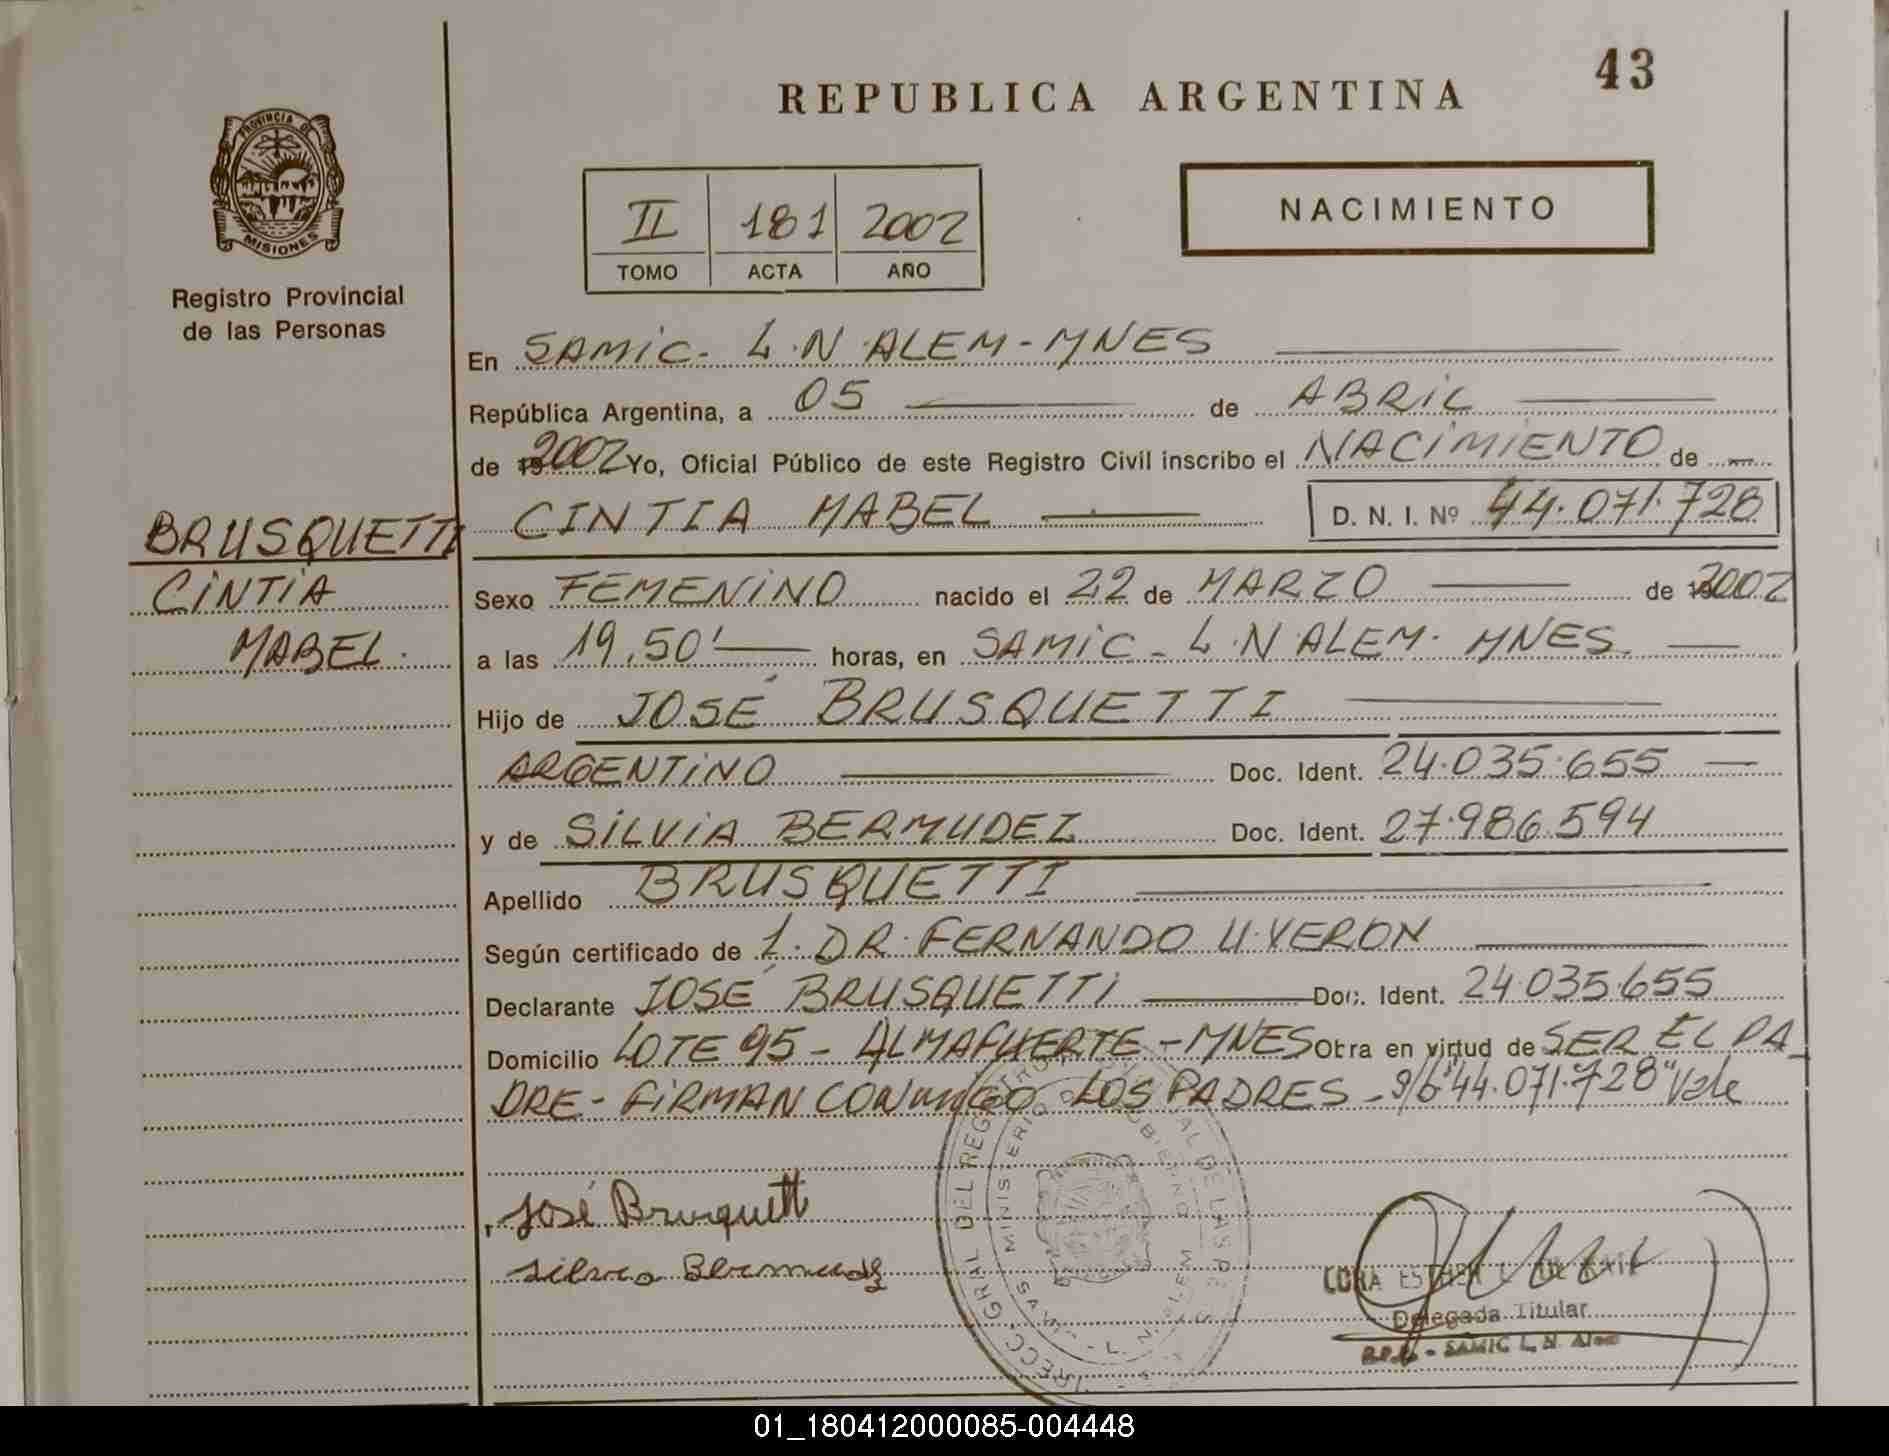 43
REPUBLICA ARGENTINA
PROVINCIA DE
MISIONES
Registro Provincial
de las Personas
II 181 2002
TOMO ACTA AÑO
NACIMIENTO
En SAMiC- L.N.ALEM-MNES
República Argentina, a 05 de ABRiL
de 2002 Yo, Oficial Público de este Registro Civil inscribo el NACiMiENTO de
BRUSQUETTI
CiNTiA
MABEL.
CINTIA MABEL D. N. I. Nº 44.071.728
Sexo FEMENiNO nacido el 22 de MARZO de 2002
a las 19,50' horas, en SAMiC - L.N.ALEM. MNES.
Hijo de JOSÉ BRUSQUETTI
ARGENTiNO Doc. Ident. 24.035.655
y de SiLViA BERMUDEZ Doc. Ident. 27.986.594
Apellido BRUSQUETTI
Según certificado de 1. DR. FERNANDO U.VERON
Declarante JOSÉ BRUSQUETTi Doc. Ident. 24.035.655
Domicilio LOTE 95 - ALMAFUERTE - MNES Obra en virtud de SER EL PA_
DRE - FiRMAN CONmiGO LOS PADRES - s/b "44.071.728" Vale
José Brusquetti
Silvia Bermudez
Delegada Titular
SAMIC L. N. Alem
01_180412000085-004448